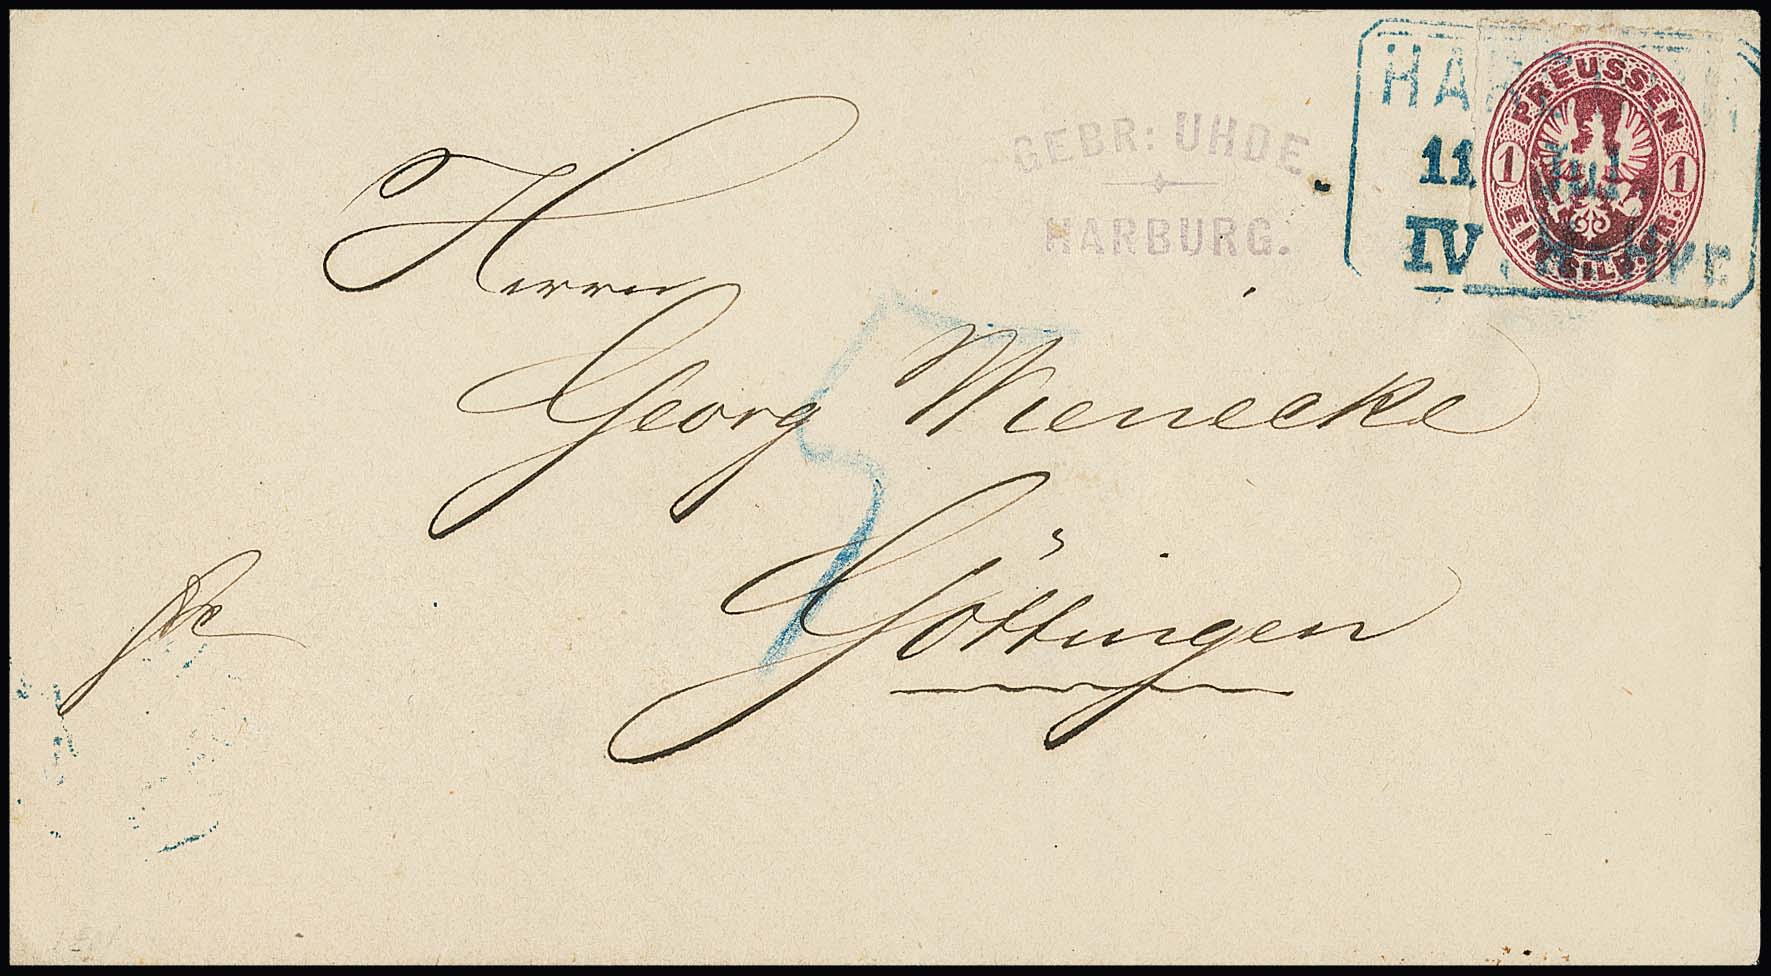 GEBR: UHDE.
HARBURG.
HA
11
IV
PREUSSEN
1 1
EIN SILB. GR.
Herrn
Georg Meinecke
Göttingen
5